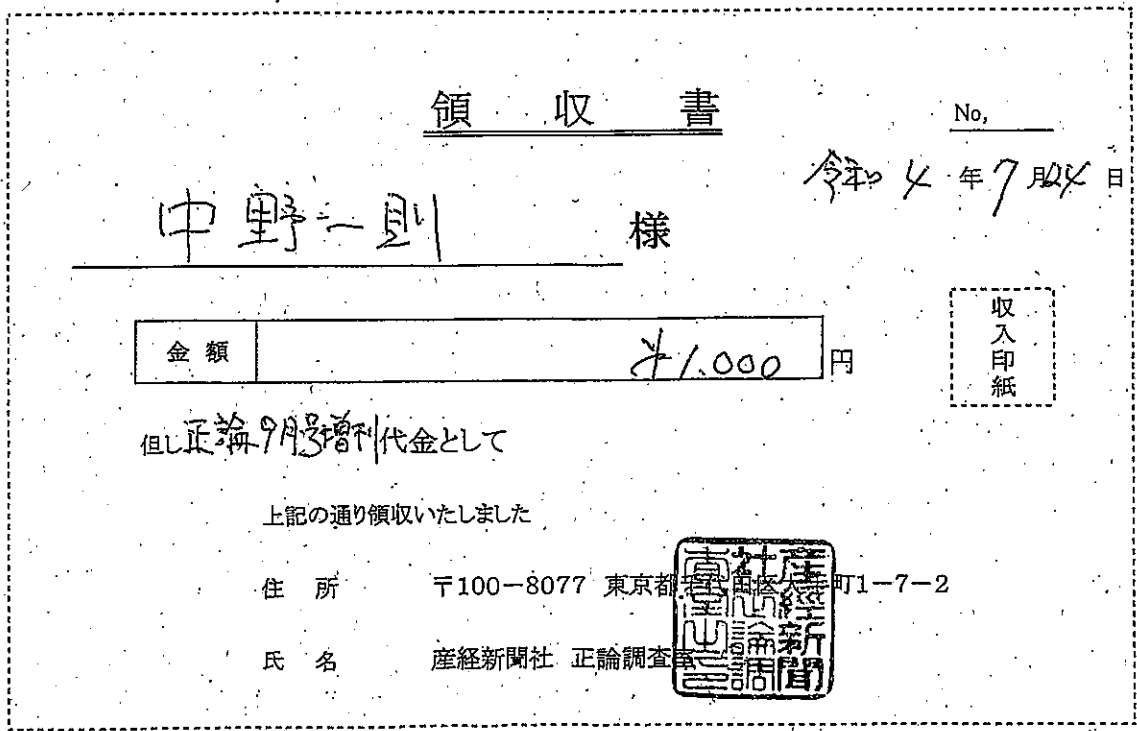 領収書
No,
令和4年7月24日
中野一則 様
金額 ¥1.000 円
収入印紙
但し正論9月号増刊代金として
上記の通り領収いたしました
住所 〒100-8077 東京都千代田区大手町1-7-2
氏名 産経新聞社 正論調査室
産経新聞社正論調査室之印